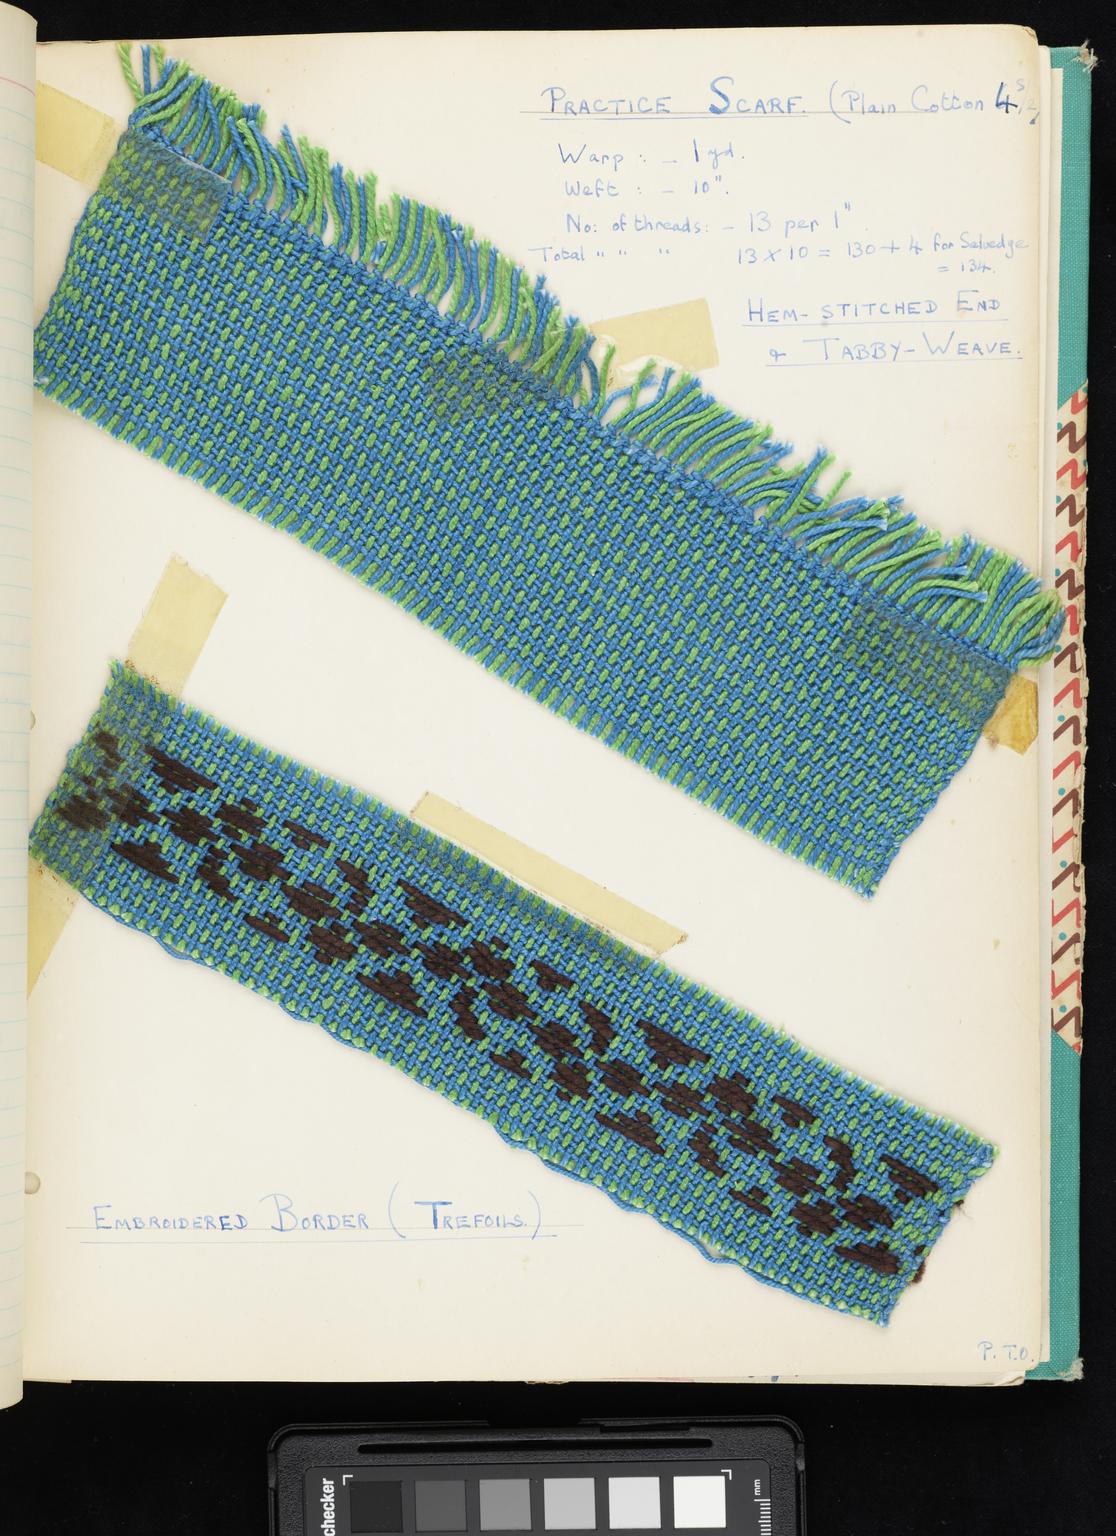 PRACTICE SCARF. (Plain Cotton 4s/2)
Warp : - 1 yd.
Weft : - 10".
No: of threads: - 13 per 1"
Total " " " 13 x 10 = 130 + 4 for Selvedge
= 134.
HEM-STITCHED END
& TABBY-WEAVE.
EMBROIDERED BORDER (TREFOILS.)
P.T.O.
checker
mm